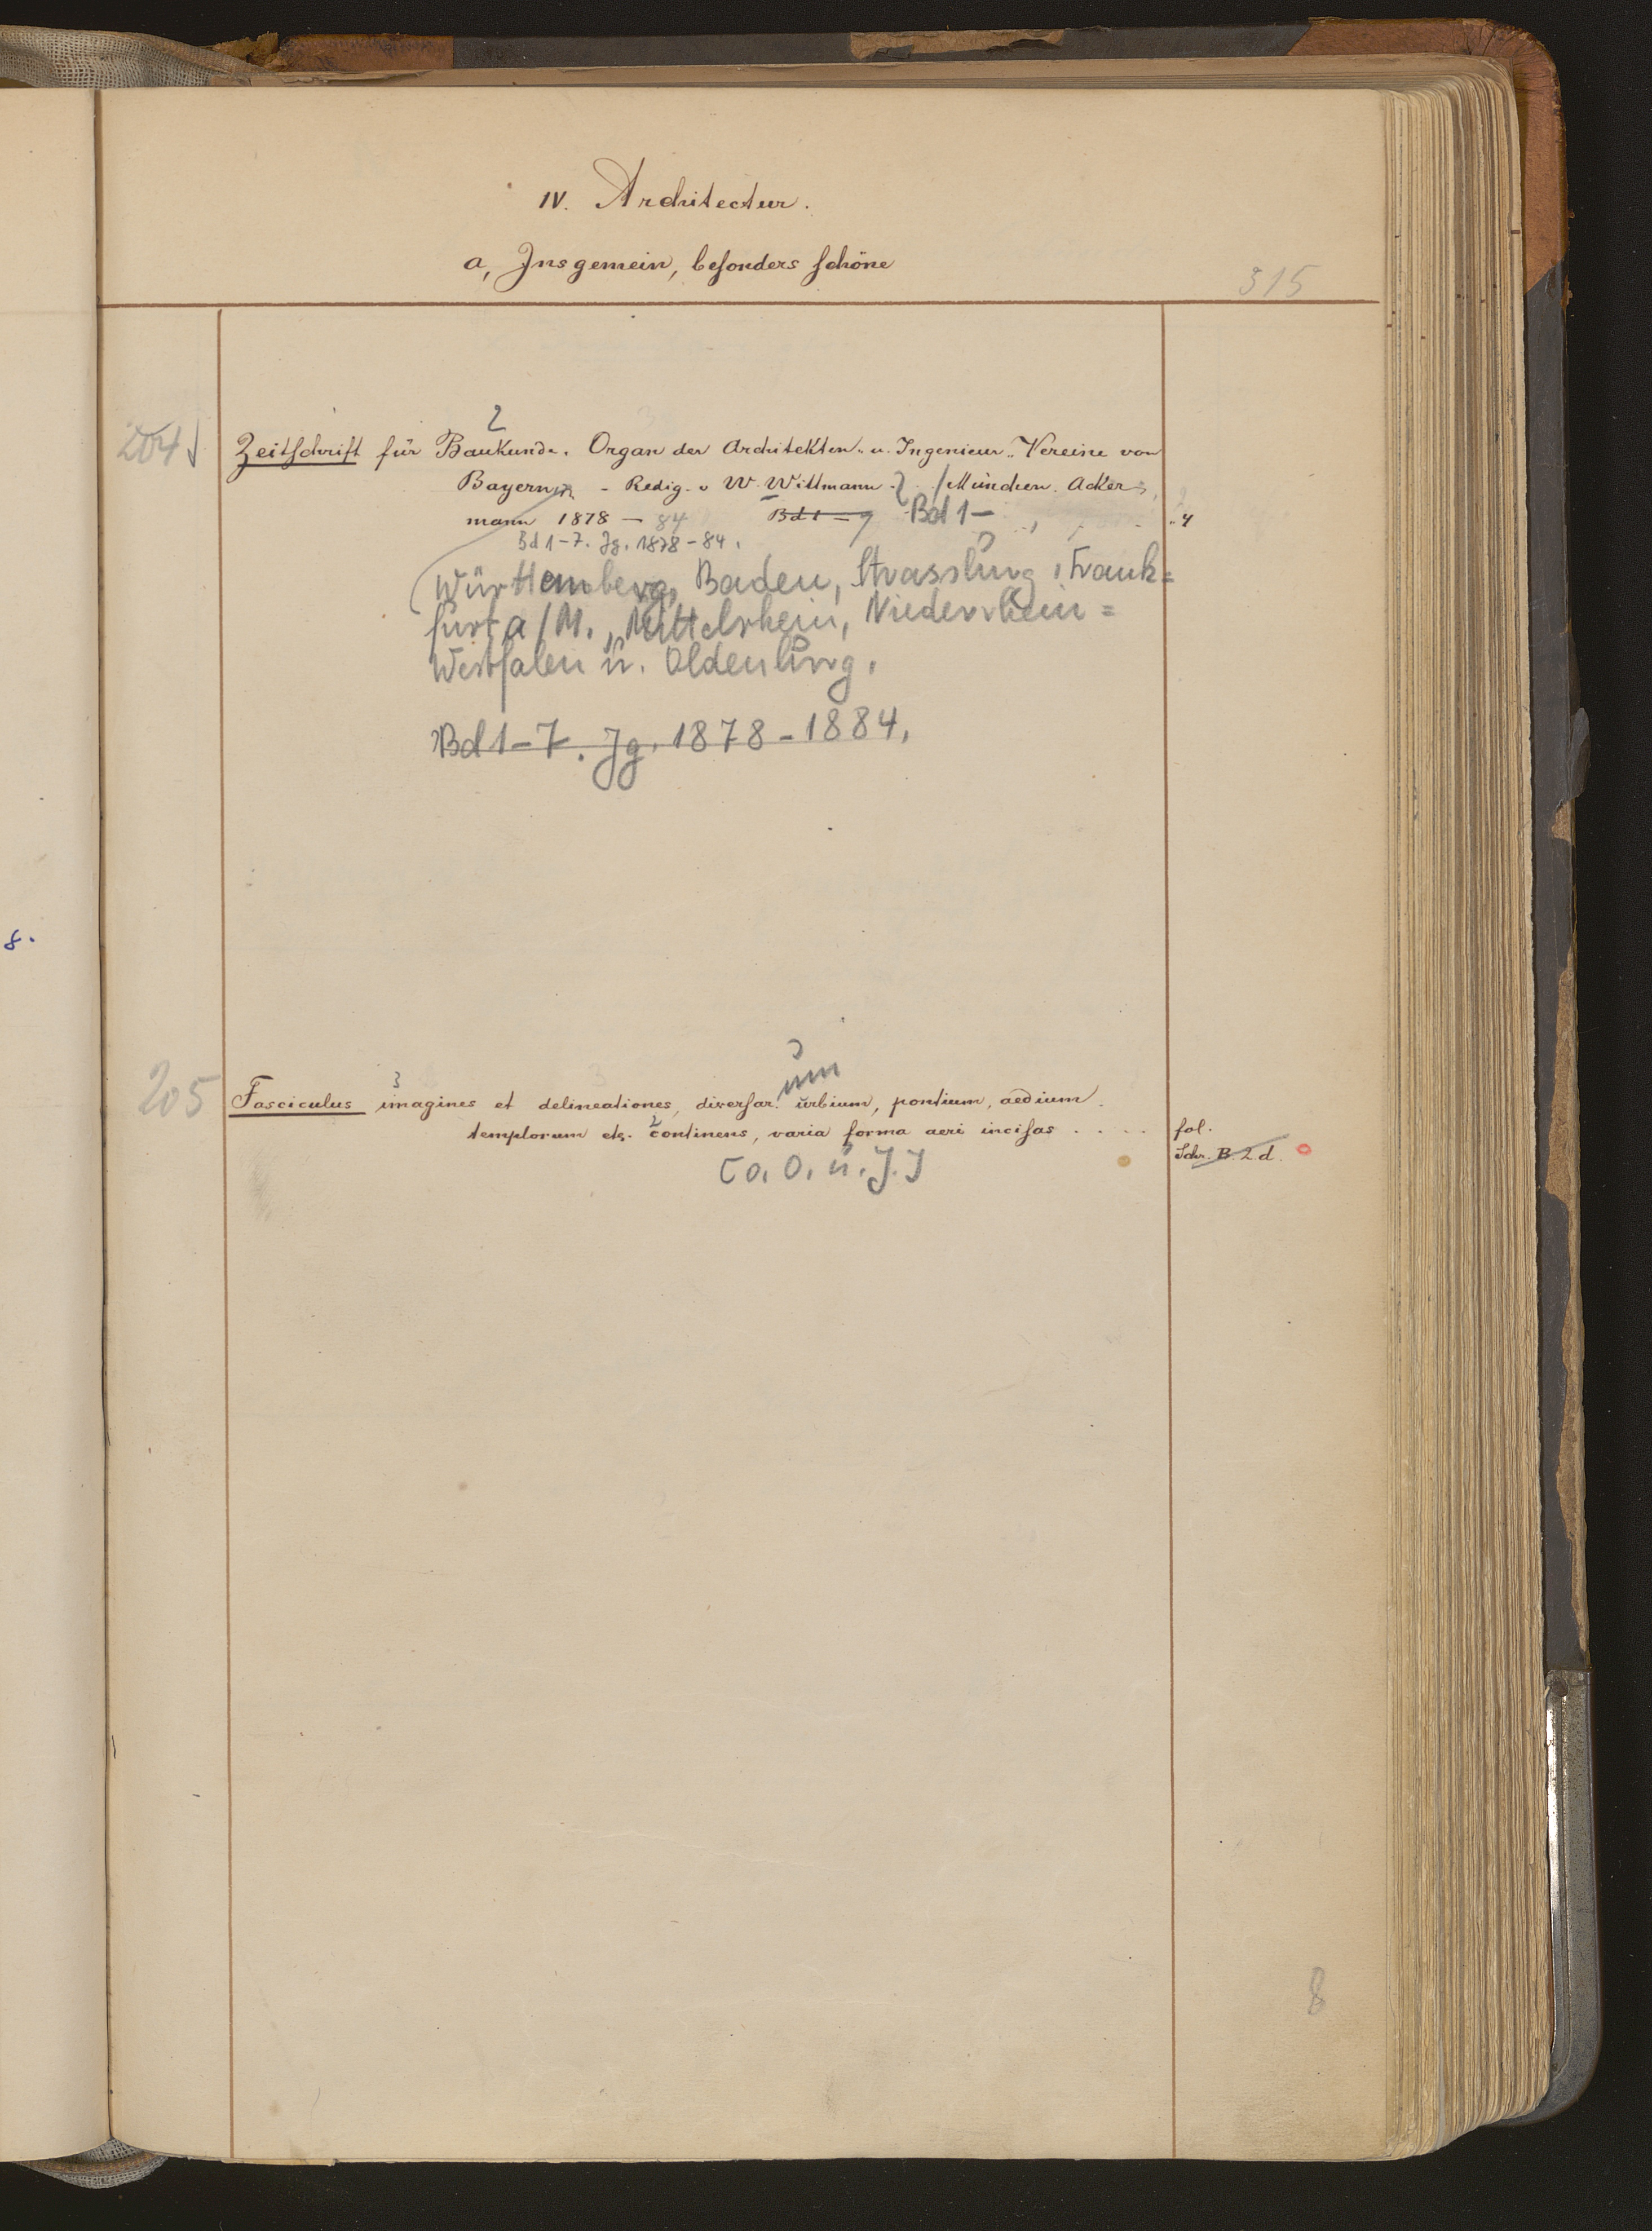 IV. Architectur.
a, Insgemein, besonders schöne
315
204
2
Zeitschrift für Baukunde. Organ der Architekten- u. Ingenieur-Vereine von
Bayern - Redig. v W. Wittmann. München. Acker-
mann 1878 - 84 Bd 1 - Bd 1 - 4
Bd 1-7. Jg. 1878-84.
Württemberg, Baden, Strassburg, Frank=
furt a/M., Mittelrhein, Niederrhein=
Westfalen u. Oldenburg.
Bd 1-7. Jg. 1878-1884.
8.
um
205
3
Fasciculus imagines et delineationes, diversar. urbium, pontium, aedium
templorum etc. 2 continens, varia forma aeri incisas . . . . fol.
Schr. B. 2 d.
[o. O. u. J.]
8